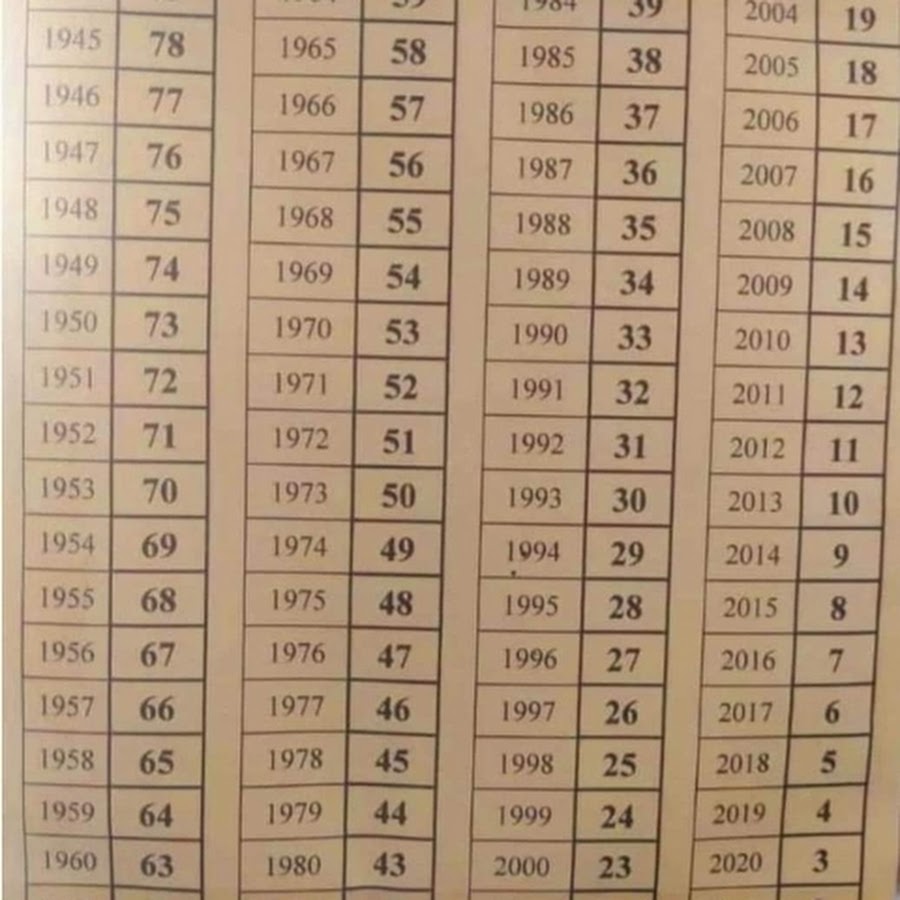 1984 39 2004 19
1945 78 1965 58 1985 38 2005 18
1946 77 1966 57 1986 37 2006 17
1947 76 1967 56 1987 36 2007 16
1948 75 1968 55 1988 35 2008 15
1949 74 1969 54 1989 34 2009 14
1950 73 1970 53 1990 33 2010 13
1951 72 1971 52 1991 32 2011 12
1952 71 1972 51 1992 31 2012 11
1953 70 1973 50 1993 30 2013 10
1954 69 1974 49 1994 29 2014 9
1955 68 1975 48 1995 28 2015 8
1956 67 1976 47 1996 27 2016 7
1957 66 1977 46 1997 26 2017 6
1958 65 1978 45 1998 25 2018 5
1959 64 1979 44 1999 24 2019 4
1960 63 1980 43 2000 23 2020 3